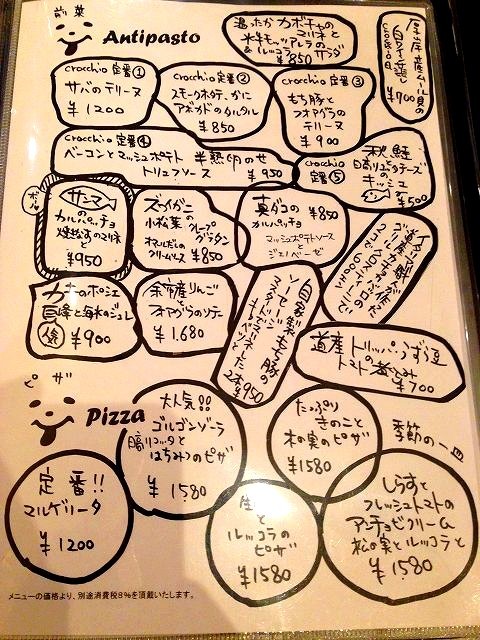 前菜
Antipasto
温ったかカボチャの
マリネと
水牛モッツァレラの
&ルッコラ サラダ
¥850
厚岸産ムール貝の
白ワイン蒸し
¥900
crocchio 定番①
サバのテリーヌ
¥1200
crocchio 定番②
スモークホタテ、かに
アボカドのタルタル
¥850
crocchio 定番③
もち豚と
フォアグラの
テリーヌ
¥900
crocchio 定番④
ベーコンとマッシュポテト 半熟卵のせ
トリュフソース ¥950
crocchio
定番⑤
秋鮭
のキッシュ
¥500
サンマ
の
カルパッチョ
焼なすのマリネ
¥950
ズワイガニ
小松菜
グラタン
¥850
真ダコの ¥850
カルパッチョ
マッシュポテトソース
と
ジェノベーゼ
カキのポシェ
と海水のジュレ
¥900
余市産りんご
フォアグラのソテー
¥1,680
自家製もち豚の
ソーセージ
2本¥950
道産トリッパ・うずら豆
の
トマト煮込み
¥700
ピザ
Pizza
大人気!!
ゴルゴンゾーラ
と
はちみつのピザ
¥1580
たっぷり
きのこと
木の実のピザ
¥1580
季節の一皿
定番!!
マルゲリータ
¥1200
生
と
ルッコラの
ピザ
¥1580
しらすと
フレッシュトマトの
アンチョビクリーム
松の実とルッコラと
¥1580
メニューの価格より、別途消費税8%を頂戴いたします。